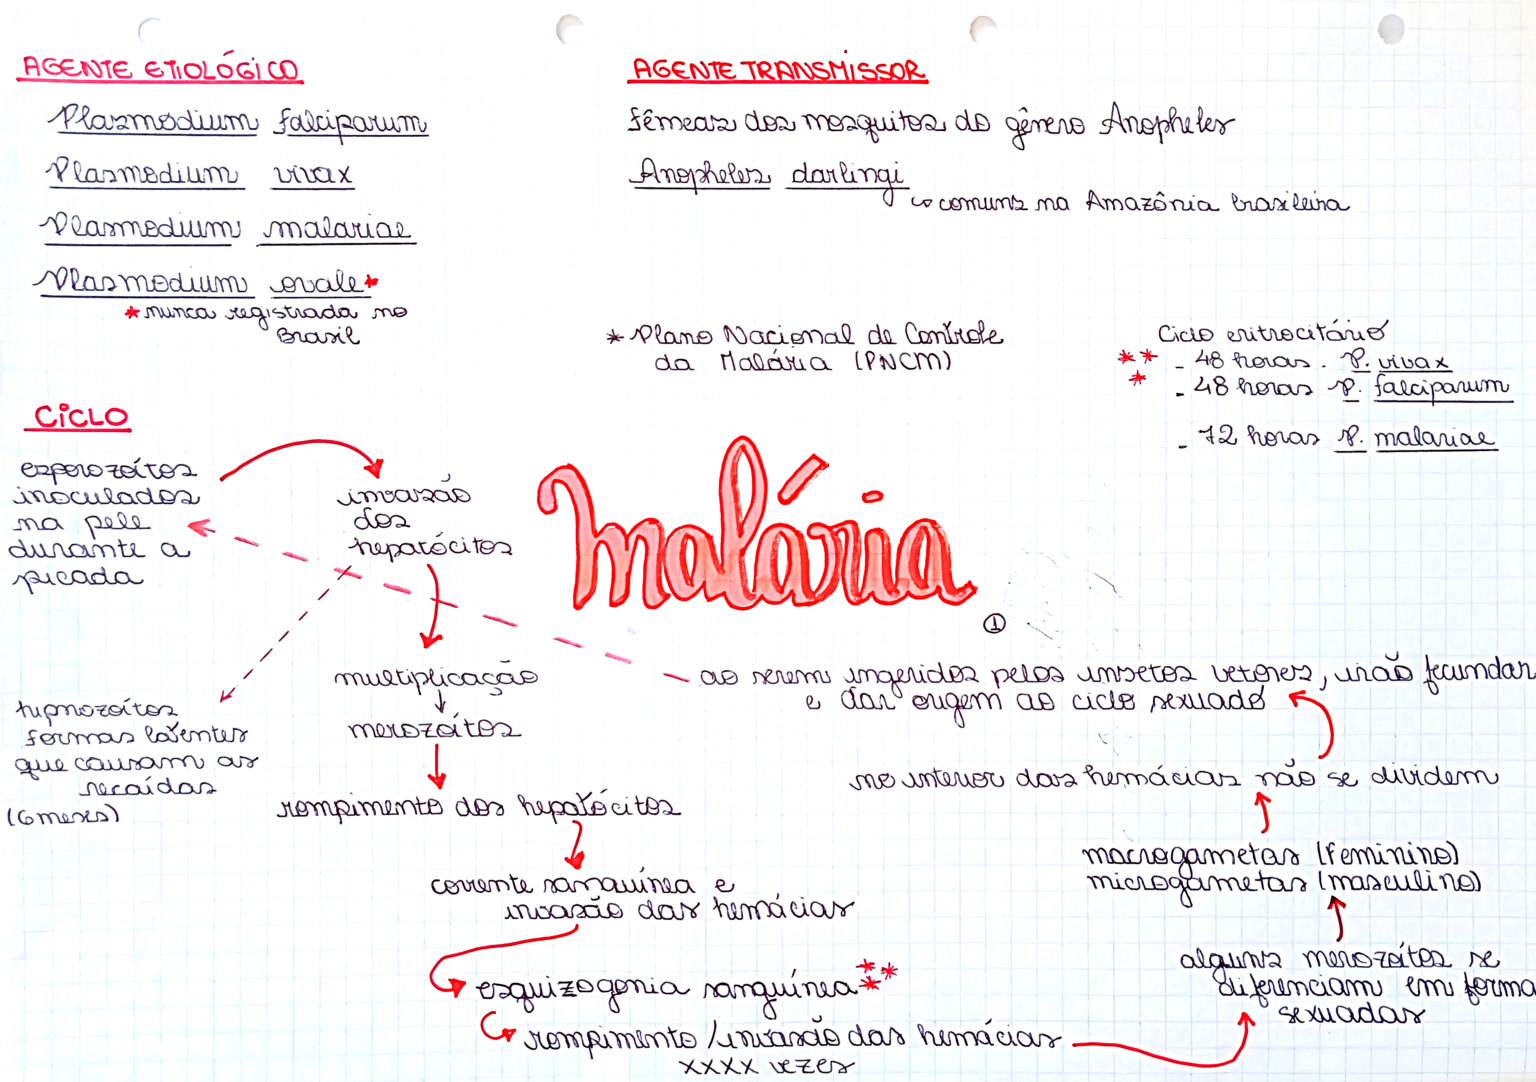 AGENTE ETIOLÓGICO
Plasmodium falciparum
Plasmodium vivax
Plasmodium malariae
Plasmodium ovale*
*nunca registrada no
Brasil
AGENTE TRANSMISSOR
fêmeas dos mosquitos do gênero Anopheles
Anopheles darlingi
↳ comuns na Amazônia brasileira
* Plano Nacional de Controle
da Malária (PNCM)
Ciclo eritrocitário
** - 48 horas. P. vivax
* - 48 horas P. falciparum
- 72 horas P. malariae
CICLO
esporozoítos
inoculados
na pele
durante a
picada
invasão
dos
hepatócitos
Malária
①
multiplicação
merozoítos
hipnozoítos
formas latentes
que causam as
recaídas
(6 meses)
rompimento dos hepatócitos
corrente sanguínea e
invasão das hemácias
esquizogonia sanguínea***
rompimento/invasão das hemácias
xxxx vezes
alguns merozoítos se
diferenciam em forma
sexuadas
macrogametas (feminino)
microgametas (masculino)
no interior das hemácias não se dividem
ao serem ingeridos pelos insetos vetores, irão fecundar
e dar origem ao ciclo sexuado